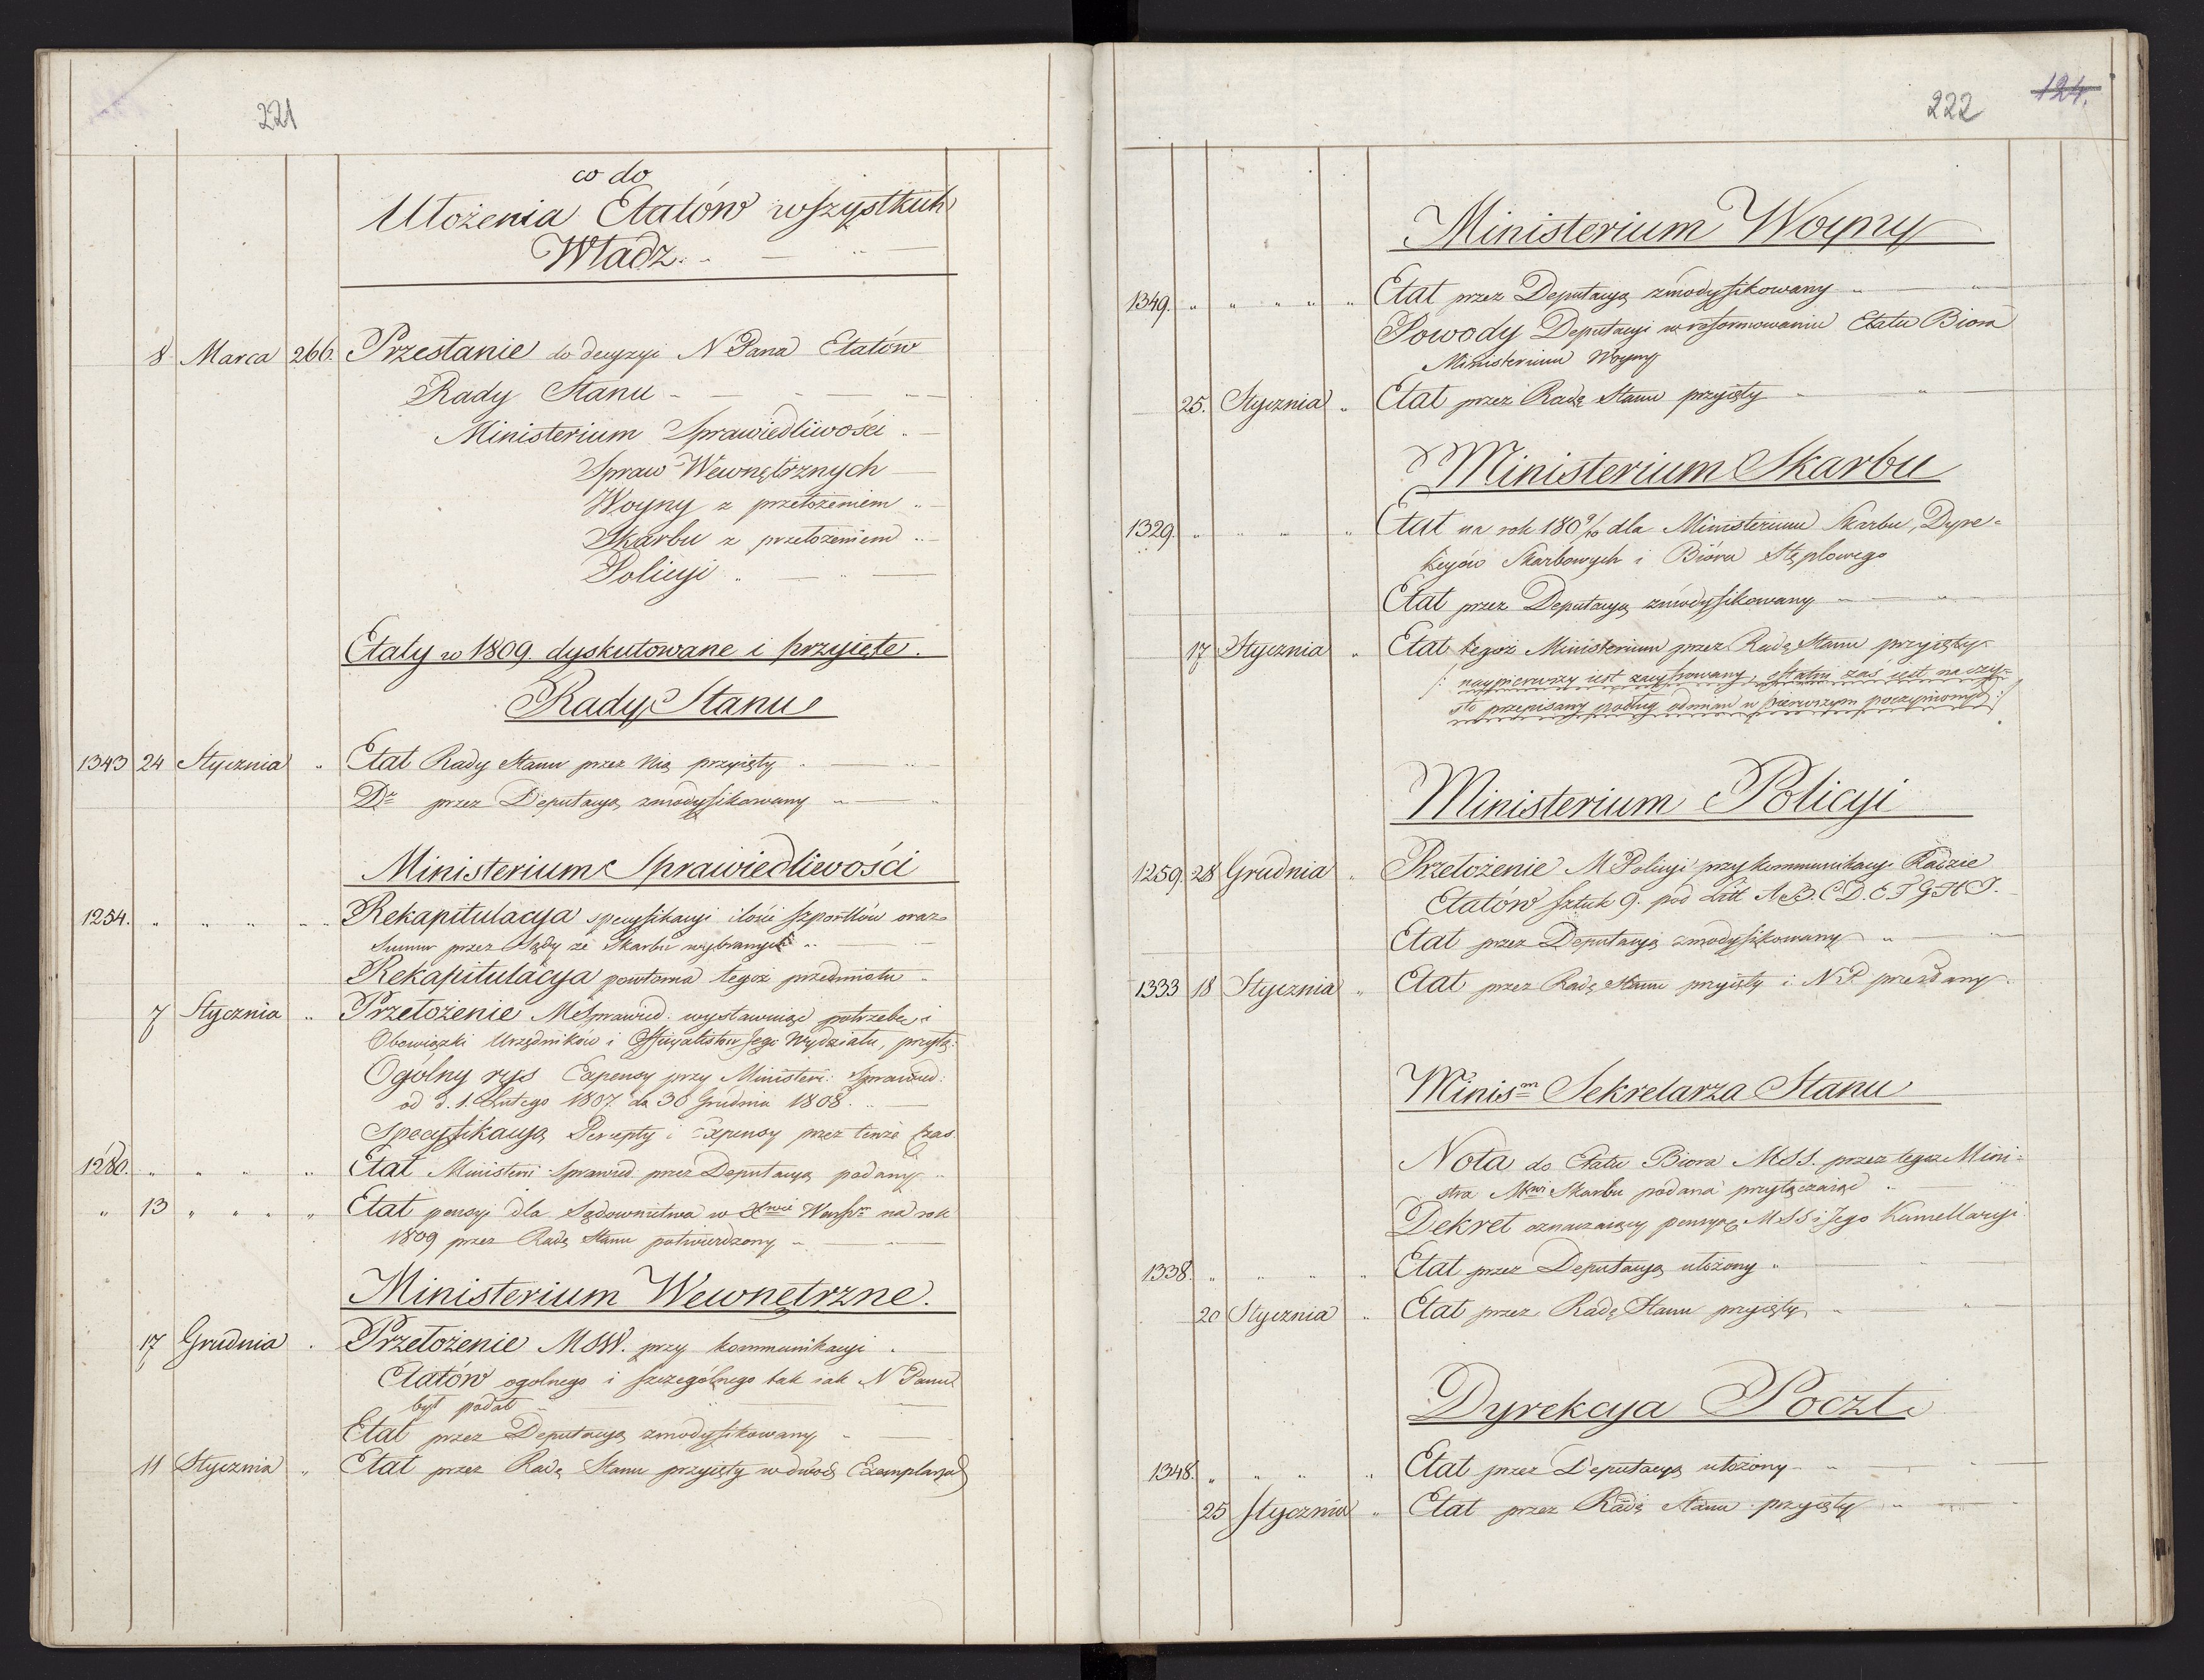 221
co do
Ułożenia Etatów wszystkich
Władz. - — "
8 Marca 266. Przesłanie do decyzyi N Pana Etatów
Rady Stanu - — - — -
Ministerium Sprawiedliwości " —
Spraw Wewnętrznych —
Woyny z przełożeniem " -
Skarbu z przełożeniem " -
Policyi " — " —
Etaty w 1809. dyskutowane i przyięte.
Rady Stanu
1343 24 Stycznia " Etat Rady Stanu przez Nią przyięty " — " —
Dº przez Deputacyą zmodyfikowany " — "
Ministerium Sprawiedliwości
1254. " " " " Rekapitulacya specyfikacyi ilości szportlów oraz
Summ przez Sądy ze Skarbu wybranych " —
Rekapitulacya powtorna tegoż przedmiotu "
7 Stycznia " Przełożenie MSprawied. wystawuiąc potrzebę i
Obowiązki Urzędników i Officyalistów Jego Wydziału, przyłą:
Ogólny rys Expensy przy Ministeri: Sprawied:
od d. 1. Lutego 1807. do 30 Grudnia 1808. " —
Specyfikacyą Percepty i Expensy przez tenże czas.
1280. " " " " Etat Ministeri Sprawied. przez Deputacyą podany "
" 13 " " " " Etat pensyi dla Sądownictwa w Xwie Warsz. na rok
1809 przez Radę Stanu potwierdzony " —
Ministerium Wewnętrzne.
17 Grudnia . Przełożenie MSW. przy kommunikacyi .
Etatów ogolnego i szczególnego tak iak N Panu
był podał " —
Etat przez Deputacyą zmodyfikowany " —
11 Stycznia " Etat przez Radę Stanu przyięty w dwóch Exemplarzach
222 124.
Ministerium Woyny
1349. " " " " " Etat przez Deputacyą zmodyfikowany " — "
Powody Deputacyi w reformowaniu Etatu Biora
Ministerium Woyny
25. Stycznia " Etat przez Radę Stanu przyięty " — "
Ministerium Skarbu
1329. " " " " Etat na rok 1809/10 dla Ministerium Skarbu, Dyre-
kcyów Skarbowych i Bióra Stęplowego
Etat przez Deputacyą zmodyfikowany " — "
17 Stycznia " Etat tegoż Ministerium przez Radę Stanu przyięty
/: naypierwszy iest zacyfrowany, ostatni zaś iest na czy-
sto przepisany podług odmian w pierwszym poczynionych :/
Ministerium Policyi
1259. 28 Grudnia . Przełożenie M Policyi przy kommunikacyi Radzie
Etatów sztuk 9. pod Litt A. B. C D. E F G H I.
Etat przez Deputacyą zmodyfikowany " — "
1333 18 Stycznia " Etat przez Radę Stanu przyięty i N P. przesłany.
Minism Sekretarza Stanu
Nota do Etatu Biora MSS. przez tegoż Mini-
stra Mowi Skarbu podana przyłączaiąc "
Dekret oznaczaiący pensyą MSS i Jego Kancellaryi
1338. " " " " Etat przez Deputacyą ułożony "
20 Stycznia " Etat przez Radę Stanu przyięty " "
Dyrekcya Poczt
1348. " " " " Etat przez Deputacyą ułożony " -
25 Stycznia " Etat przez Radę Stanu przyięty " —